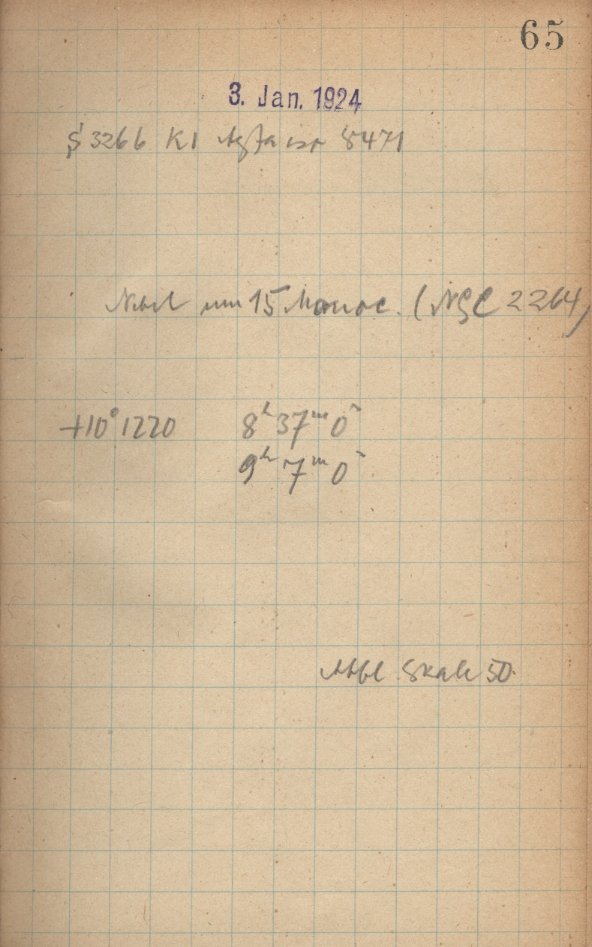 65
3. Jan. 1924
S 3266 Kl Agfa isr 8471
Nebel um 15 Monoc. (NGC 2264)
+10° 1220 8ʰ 37ᵐ 0ˢ
9ʰ 7ᵐ 0ˢ
Skale 50.